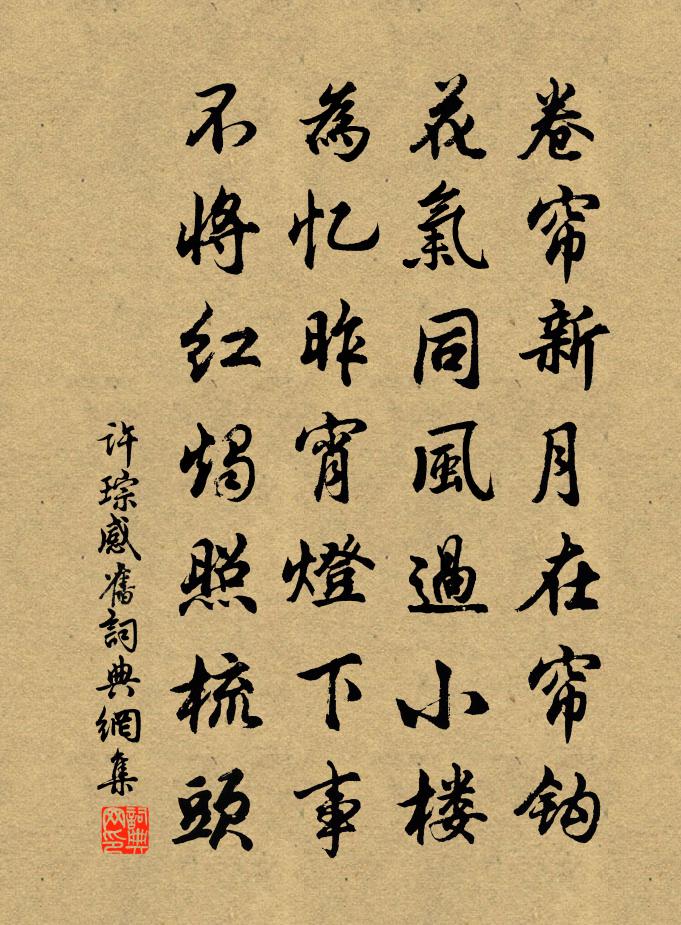 卷帘新月在帘钩
花氣同風過小楼
為忆昨宵燈下事
不将红烛照梳頭
许琮感舊詞典網集
詞典网印